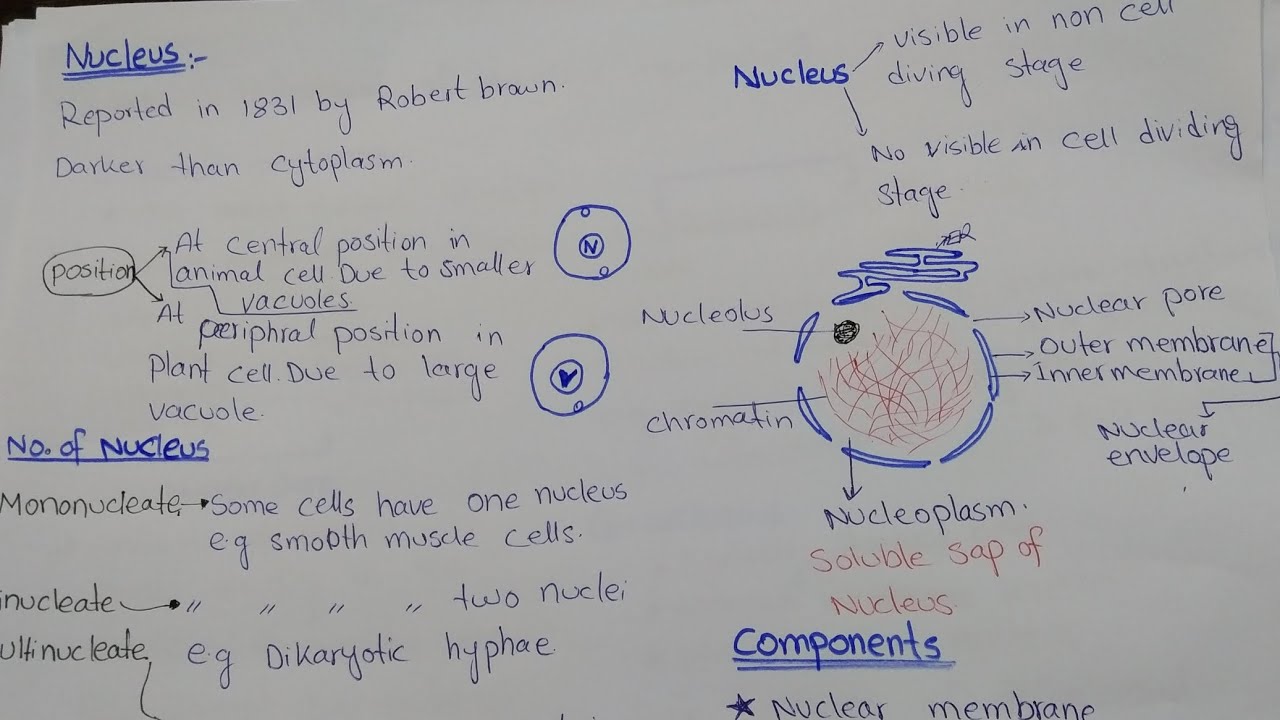 Nucleus:-
Reported in 1831 by Robert brown.
Darker than cytoplasm.
position
At central position in
animal cell. Due to smaller
vacuoles.
At peeriphral position in
Plant cell. Due to large
vacuole.
N
No. of Nucleus
Mononucleate Some cells have one nucleus
e.g smooth muscle cells.
inucleate " " " " two nuclei
ultinucleate e.g Dikaryotic hyphae.
Nucleus
visible in non cell
diving stage
No visible in cell dividing
stage.
ER
Nucleolus
Nuclear pore
Outer membrane
Inner membrane
chromatin
Nuclear
envelope
Nucleoplasm.
Soluble sap of
Nucleus.
Components
★ Nuclear membrane